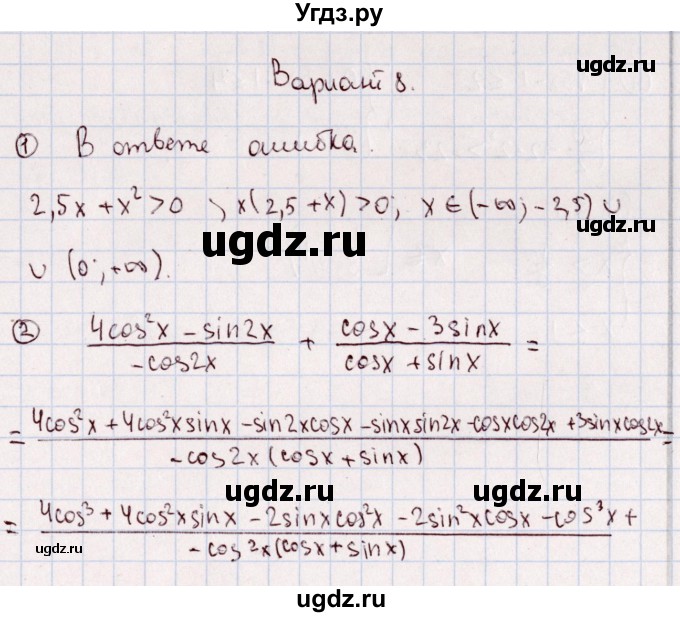 Угдз.ру
ugdz.ru
Вариант 8.
① В ответе ошибка.
2,5x + x² > 0 , x(2,5 + x) > 0; x ∈ (-∞; -2,5) ∪
∪ (0; +∞).
ugdz.ru
ugdz.ru
② (4cos²x - sin2x)/(-cos2x) + (cosx - 3sinx)/(cosx + sinx) =
= (4cos²x + 4cos²x sinx - sin2x cosx - sinx sin2x - cosx cos2x + 3sinx cos2x)/(-cos2x (cosx + sinx)) =
ugdz.ru ugdz.ru
= (4cos³ + 4cos²x sinx - 2sinx cos²x - 2sin²x cosx - cos³x +)/(-cos2x (cosx + sinx))
ugdz.ru ugdz.ru
ugdz.ru